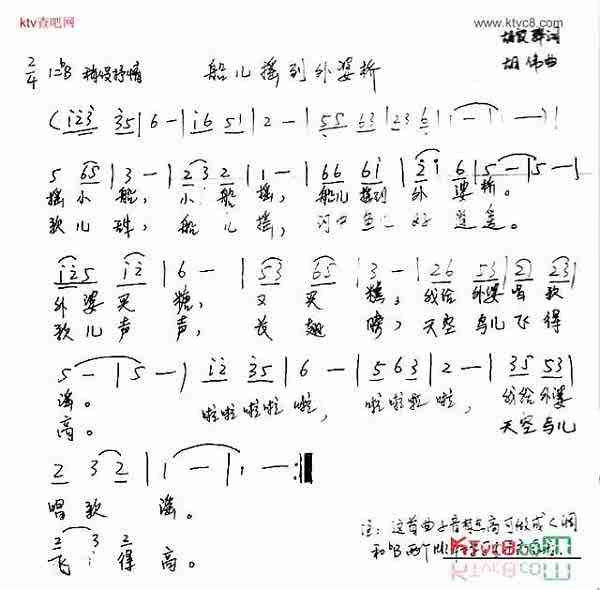 ktv查吧网
www.ktyc8.com
2/4 1=♭B 稍慢抒情 船儿摇到外婆桥
胡伟曲
(i̇2̇3̇ 3̇5|6-|i̇6 51|2-|55 63|23 6|1-|1-)|
5 65|3-|2 3 2|1-|66 6i|2̇i 6|5-|5-|
摇小船，小船摇，船儿摇到外婆桥。
歌儿 船儿摇，河中鱼儿好逍遥。
i̇2̇5 i̇2̇|6-|53 65|3-|26 53|21 23|
外婆买糖，又买糕，我给外婆唱歌
歌儿声声，长翅膀，天空鸟儿飞得
5-|5-) i̇2̇ 3̇5|6-|563|2-|35 53|
谣。 啦啦啦啦啦，啦啦啦啦，我给外婆
高。 天空鸟儿
2 3 2|1-|1-:‖
唱歌谣。
飞得高。
注：这首曲子音域 高可改成 调
和 B两个
KtvC8.com